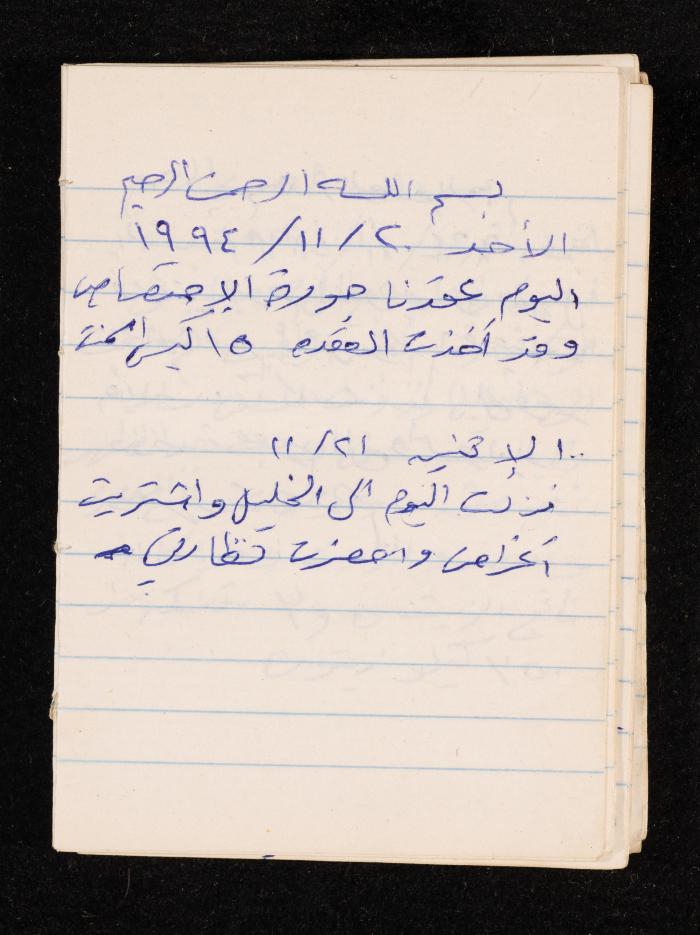 بسم الله الرحمن الرحيم
الأحد ٢٠/١١/١٩٩٤
اليوم عقدنا جورة الإمتصاص
وقد أخذت العقده ١٥ كيس اسمنت
الإثنين ٢١/١١
نزلت اليوم الى الخليل واشتريت
أغراض واحضرت نظارتي